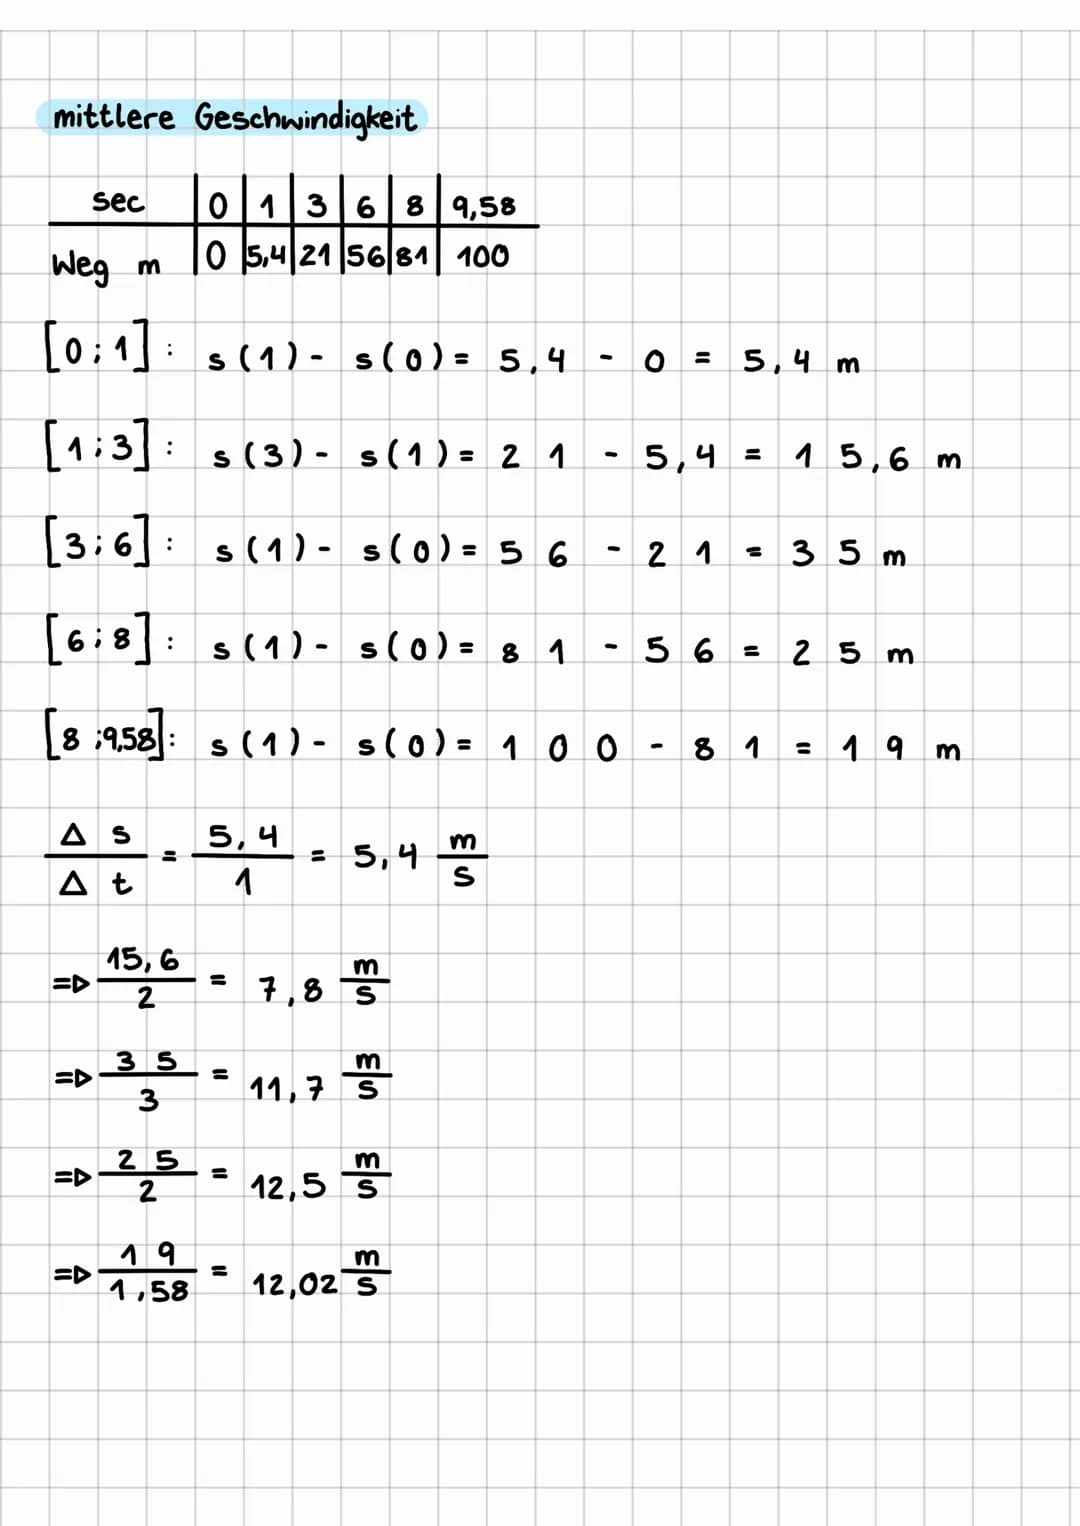 mittlere Geschwindigkeit
sec | 0 | 1 | 3 | 6 | 8 | 9,58
Weg m | 0 | 5,4 | 21 | 56 | 81 | 100
[0;1]: s(1) - s(0) = 5,4 - 0 = 5,4 m
[1;3]: s(3) - s(1) = 21 - 5,4 = 15,6 m
[3;6]: s(1) - s(0) = 56 - 21 = 35 m
[6;8]: s(1) - s(0) = 81 - 56 = 25 m
[8;9,58]: s(1) - s(0) = 100 - 81 = 19 m
Δs/Δt = 5,4/1 = 5,4 m/s
⇒ 15,6/2 = 7,8 m/s
⇒ 35/3 = 11,7 m/s
⇒ 25/2 = 12,5 m/s
⇒ 19/1,58 = 12,02 m/s